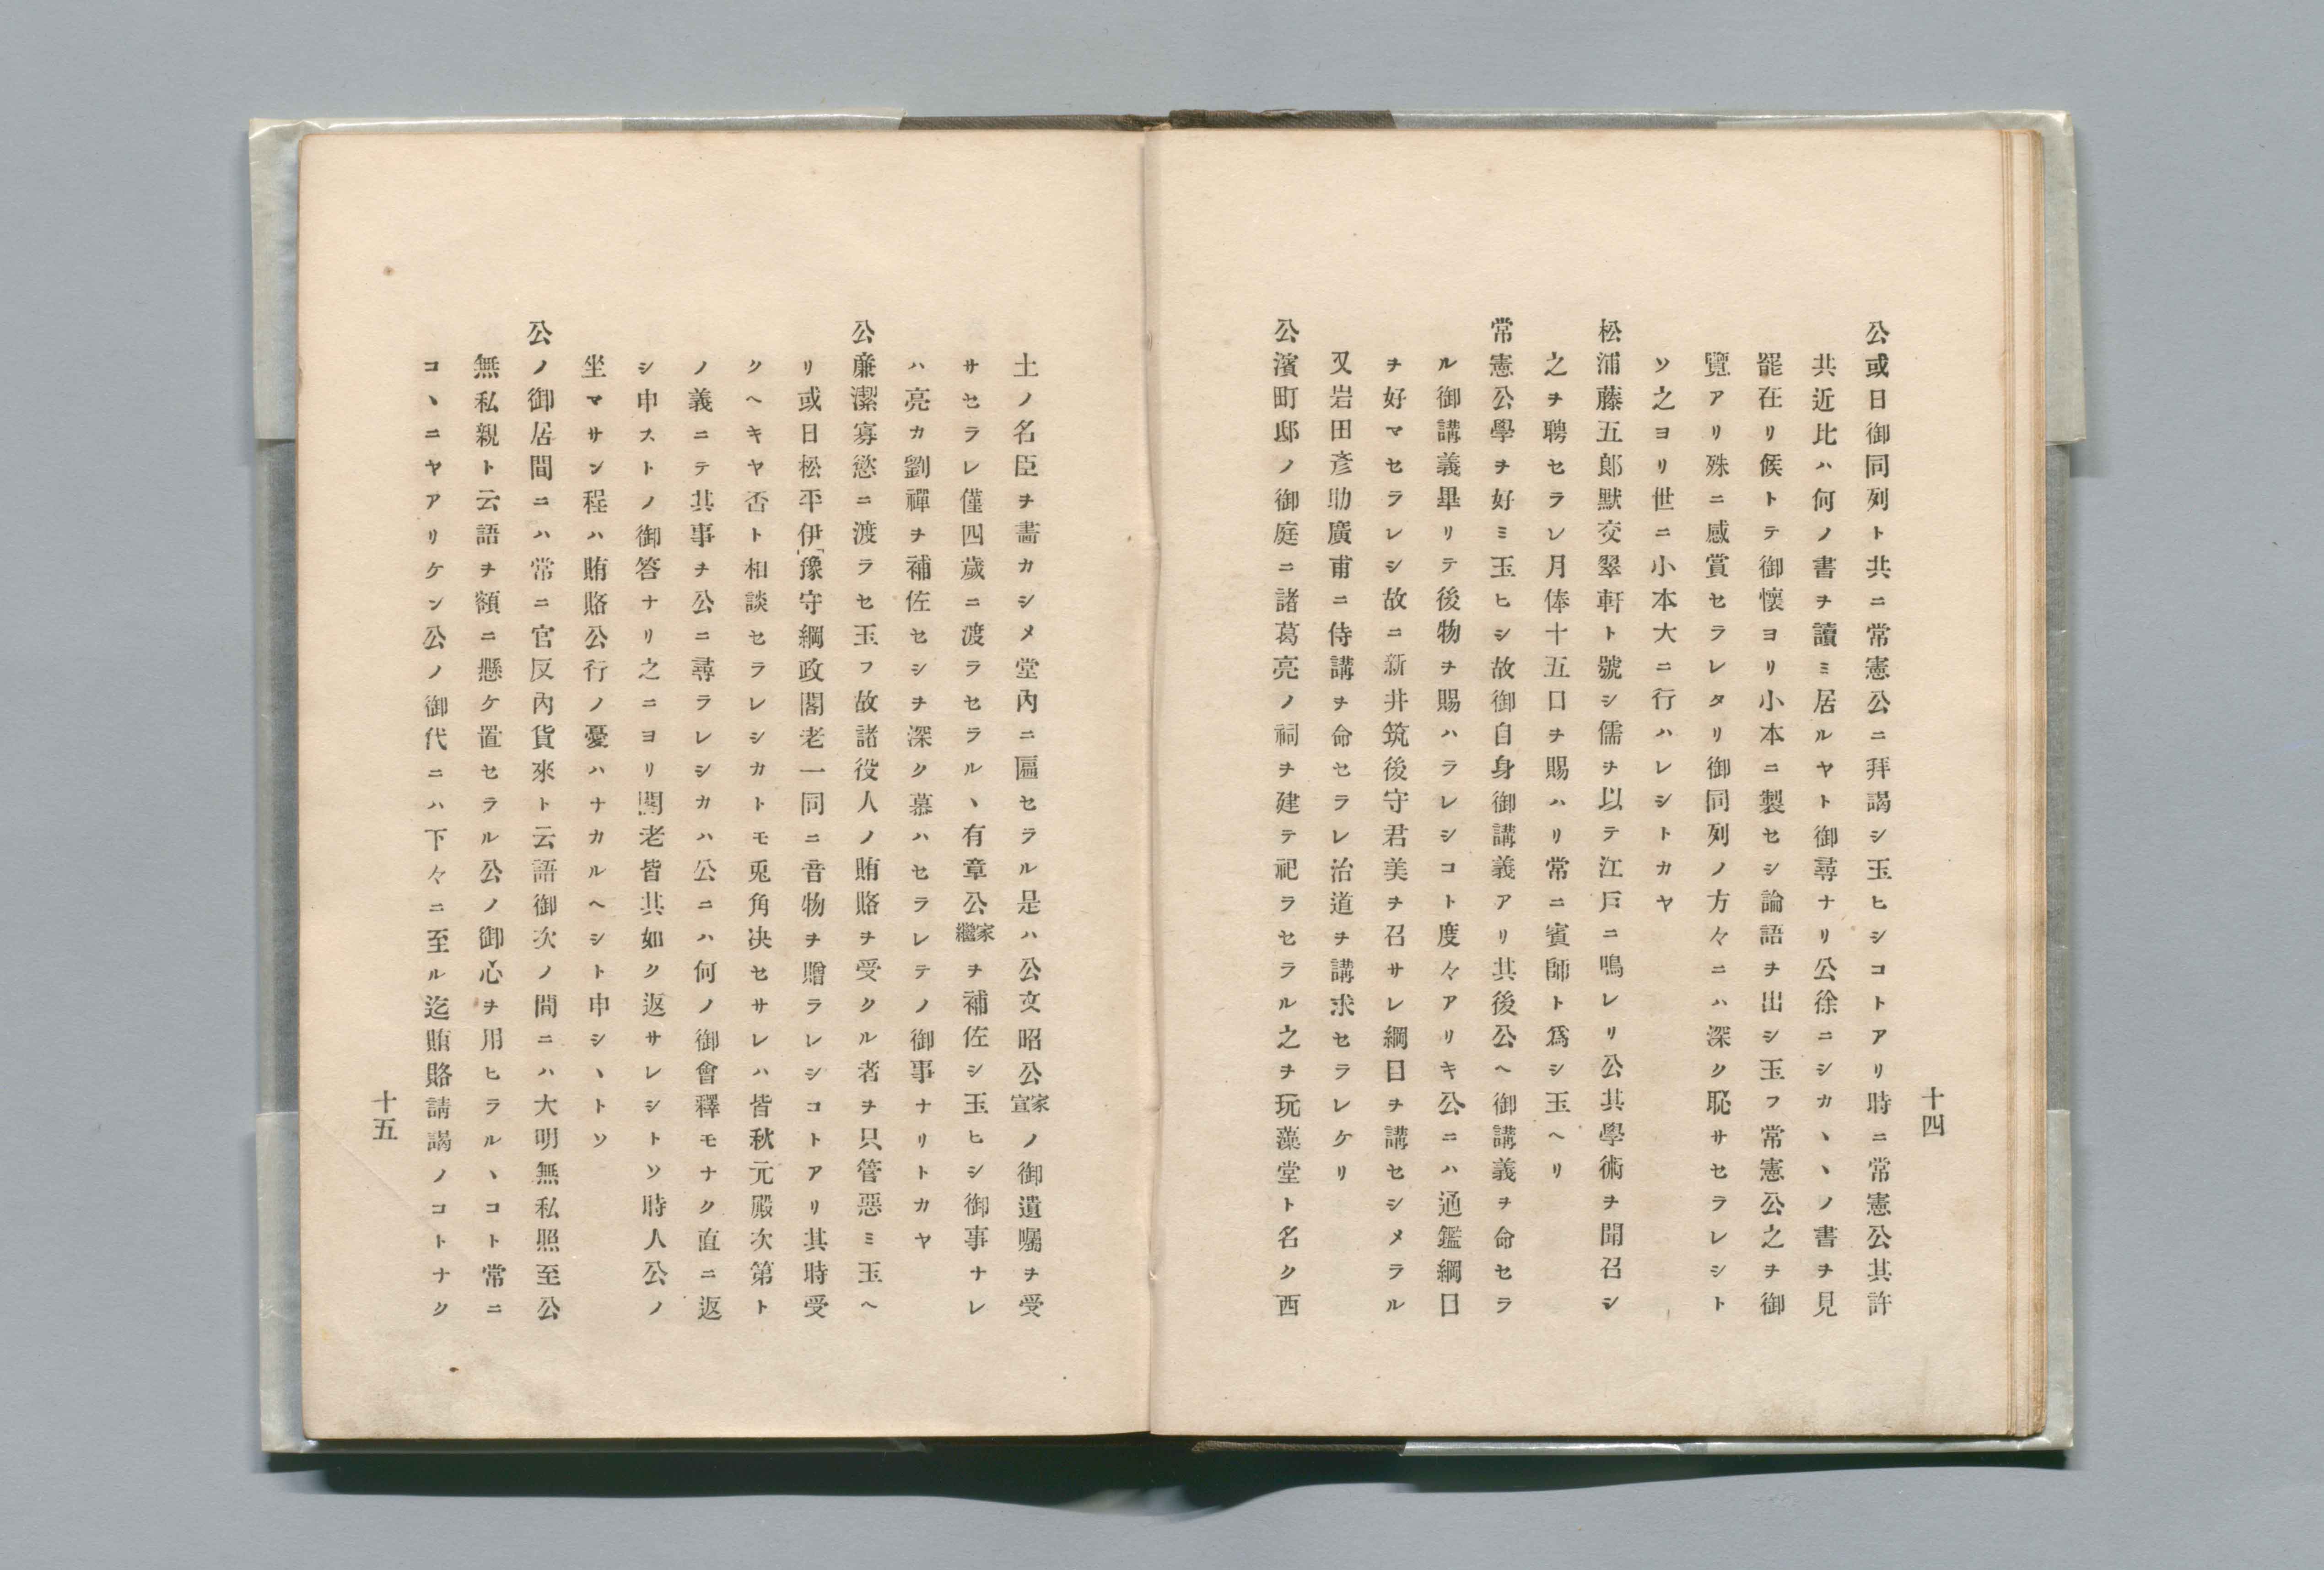 十四
公或日御同列ト共ニ常憲公ニ拜謁シ玉ヒシコトアリ時ニ常憲公其許
共近比ハ何ノ書ヲ讀ミ居ルヤト御尋ナリ公徐ニシカヽヽノ書ヲ見
罷在リ候トテ御懷ヨリ小本ニ製セシ論語ヲ出シ玉フ常憲公之ヲ御
覽アリ殊ニ感賞セラレタリ御同列ノ方々ニハ深ク恥サセラレシト
ソ之ヨリ世ニ小本大ニ行ハレシトカヤ
松浦藤五郎默交翠軒ト號シ儒ヲ以テ江戸ニ鳴レリ公其學術ヲ聞召シ
之ヲ聘セラレ月俸十五口ヲ賜ハリ常ニ賓師ト爲シ玉ヘリ
常憲公學ヲ好ミ玉ヒシ故御自身御講義アリ其後公ヘ御講義ヲ命セラ
ル御講義畢リテ後物ヲ賜ハラレシコト度々アリキ公ニハ通鑑綱目
ヲ好マセラレシ故ニ新井筑後守君美ヲ召サレ綱目ヲ講セシメラル
又岩田彥助廣甫ニ侍講ヲ命セラレ治道ヲ講求セラレケリ
公濱町邸ノ御庭ニ諸葛亮ノ祠ヲ建テ祀ラセラル之ヲ玩藻堂ト名ク西
土ノ名臣ヲ畵カシメ堂内ニ匾セラル是ハ公文昭公家宣ノ御遺囑ヲ受
サセラレ僅四歲ニ渡ラセラルヽ有章公家繼ヲ補佐シ玉ヒシ御事ナレ
ハ亮カ劉禪ヲ補佐セシヲ深ク慕ハセラレテノ御事ナリトカヤ
公廉潔寡慾ニ渡ラセ玉フ故諸役人ノ賄賂ヲ受クル者ヲ只管惡ミ玉ヘ
リ或日松平伊豫守綱政閣老一同ニ音物ヲ贈ラレシコトアリ其時受
クヘキヤ否ト相談セラレシカトモ兎角决セサレハ皆秋元殿次第ト
ノ義ニテ其事ヲ公ニ尋ラレシカハ公ニハ何ノ御會釋モナク直ニ返
シ申ストノ御答ナリ之ニヨリ閣老皆其如ク返サレシトソ時人公ノ
坐マサン程ハ賄賂公行ノ憂ハナカルヘシト申シヽトソ
公ノ御居間ニハ常ニ官反內貨來ト云語御次ノ間ニハ大明無私照至公
無私親ト云語ヲ額ニ懸ケ置セラル公ノ御心ヲ用ヒラルヽコト常ニ
コヽニヤアリケン公ノ御代ニハ下々ニ至ル迄賄賂請謁ノコトナク
十五